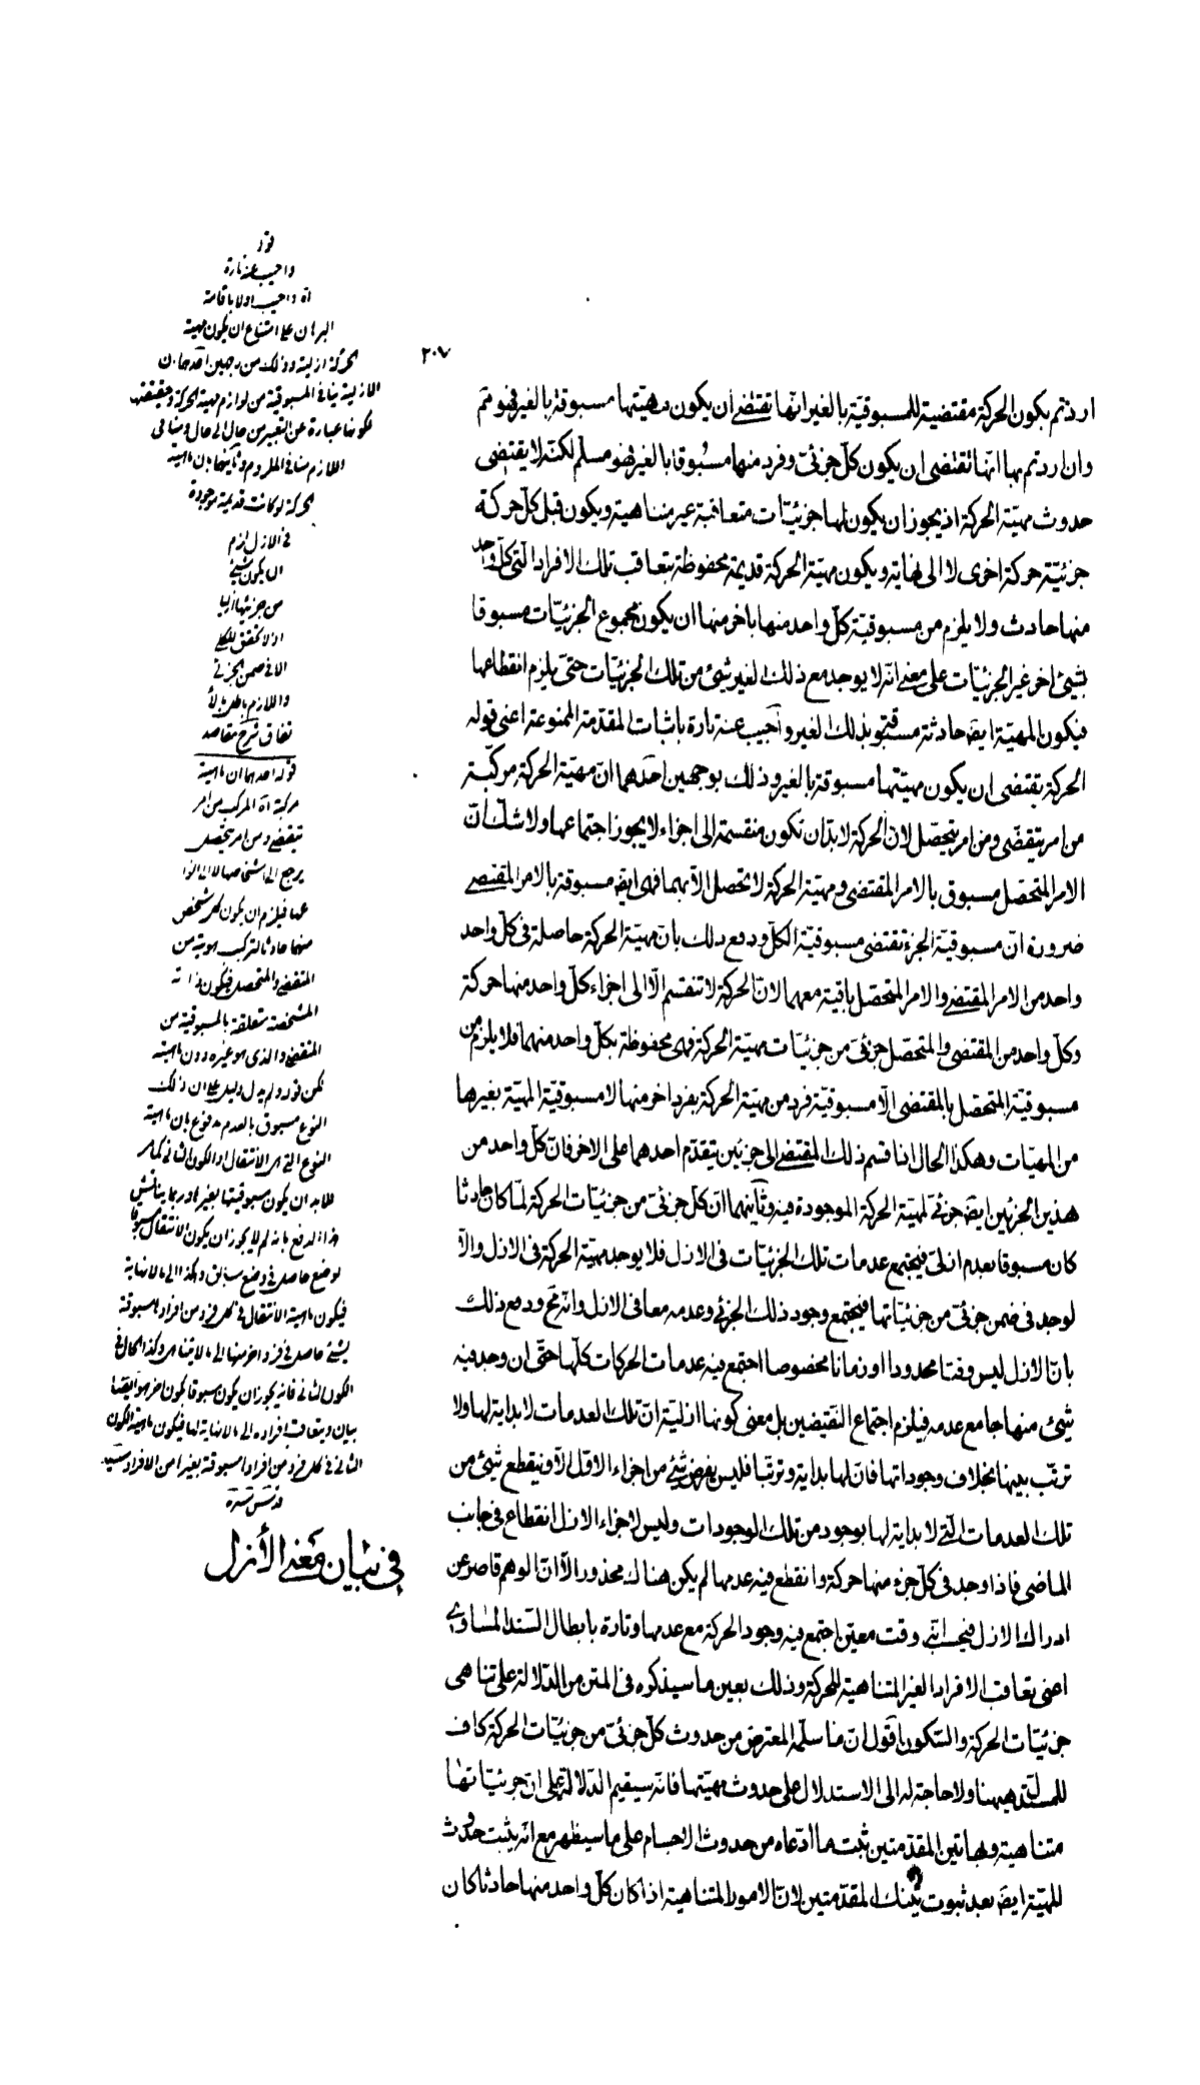 ٢٠٧
اردتم بكون الحركة مقتضية للمسبوقية بالغير انّها تقتضى ان يكون مهيتها مسبوقة بالغير فهو ثم
وان اردتم بها انّها تقتضى ان يكون كلّ جزئىّ وفرد منها مسبوقا بالغير فهو مسلم لكنّه لا يقتضى
حدوث مهيّة الحركة اذ يجوز ان يكون لها جزئيّات متعاقبة غير متناهية ويكون قبل كلّ حركة
جزئيّة حركة اخرى لا الى نهاية ويكون مهيّة الحركة قديمة محفوظة بتعاقب تلك الافراد الّتى كلّ واحد
منها حادث ولا يلزم من مسبوقيّة كلّ واحد منها باخر منها ان يكون مجموع الجزئيّات مسبوقا
بشيئ اخر غير الجزئيّات على معنى انّه لا يوجد مع ذلك الغير شيئ من تلك الجزئيّات حتّى يلزم انقطاعها
فيكون المهيّة ايضَ حادثة مسبوقة بذلك الغير واجيب عنه تارة باثبات المقدّمة الممنوعة اعنى قوله
الحركة يقتضى ان يكون مهيّتها مسبوقة بالغير وذلك بوجهين احدهما انّ مهيّة الحركة مركّبة
من امر يتقضّى ومن امر يتحصّل لانّ الحركة لا بدّ ان تكون منقسمة الى اجزاء لا يجوز اجتماعها ولا شكّ انّ
الامر المتحصّل مسبوق بالامر المقتضى ومهيّة الحركة لا تحصل الّا بهما فهى ايضَ مسبوقة بالامر المقتضى
ضرورة انّ مسبوقيّة الجزء تقتضى مسبوقيّة الكلّ ودفع ذلك بانّ مهيّة الحركة حاصلة فى كلّ واحد
واحد من الامر المقتضى والامر المتحصّل باقية معهما لانّ الحركة لا تنقسم الّا الى اجزاء كلّ واحد منها حركة
وكلّ واحد من المقتضى والمتحصّل جزئىّ من جزئيّات مهيّة الحركة فهى محفوظة بكلّ واحد منهما فلا يلزم من
مسبوقيّة المتحصّل بالمقتضى الّا مسبوقيّة فرد من مهيّة الحركة بفرد اخر منها لا مسبوقيّة المهيّة بغيرها
من المهيّات وهكذا الحال اذا قسم ذلك المقتضى الى جزئين يتقدّم احدهما على الاخر فانّ كلّ واحد من
هذين الجزئين ايضَ جزئىّ لمهيّة الحركة الموجودة فيه وثانيهما انّ كلّ جزئىّ من جزئيّات الحركة لمّا كان حادثا
كان مسبوقا بعدم ازلىّ فيجتمع عدمات تلك الجزئيّات فى الازل فلا يوجد مهيّة الحركة فى الازل والّا
لوجد فى ضمن جزئىّ من جزئيّاتها فيجتمع وجود ذلك الجزئى وعدمه معا فى الازل وانّه مح ودفع ذلك
بانّ الازل ليس وقتا محدودا او زمانا مخصوصا اجتمع فيه عدمات الحركات كلّها حتّى ان وجد فيه
شيئ منها جامع عدمه فيلزم اجتماع النّقيضين بل معنى كونها ازليّة انّ تلك العدمات لا بداية لها ولا
ترتّب بينها بخلاف وجوداتها فانّ لها بداية وترتّبا فليس يفرض شيئ من اجزاء الازل الّا وينقطع شيئ من
تلك العدمات الّتى لا بداية لها بوجود من تلك الوجودات وليس لاجزاء الازل انقطاع فى جانب
الماضى فاذا وجد فى كلّ جزء منها حركة وانقطع فيه عدمها لم يكن هناك محذور الّا انّ الوهم قاصر عن
ادراك الازل فيحسب انّه وقت معيّن اجتمع فيه وجود الحركة مع عدمها وتارة بابطال السّند المساوى
اعنى تعاقب الافراد الغير المتناهية للحركة وذلك بعين ما سيذكره فى المتن من الدّلالة على تناهى
جزئيّات الحركة والسّكون اقول انّ ما سلّمه المعترض من حدوث كلّ جزئىّ من جزئيّات الحركة كاف
للمستدل هيهنا ولا حاجة له الى الاستدلال على حدوث مهيّتها فانّه سيقيم الدّلالة على انّ جزئيّاتها
متناهية وبهاتين المقدّمتين ثبت ما ادّعاه من حدوث الاجسام على ما سيظهر مع انّه يثبت حدوث
المهيّة ايضَ بعد ثبوت تينك المقدّمتين لانّ الامور المتناهية اذا كان كلّ واحد منها حادثا كان
قوله
واجيب عنه تارة
اه واجيب اولا باقامة
البرهان على امتناع ان يكون مهية
الحركة ازلية وذلك من وجهين احدهما ان
الازلية ينافى المسبوقية من لوازم مهية الحركة وحقيقتها
لكونها عبارة عن التغير من حال الى حال ومنافى
اللازم مناف الملزوم وثانيهما ان ماهية
الحركة لو كانت قديمة موجودة
فى الازل لزم
ان يكون شيئ
من جزئياتها ازليا
اذ لا تحقق للكلى
الا فى ضمن الجزئى
واللازم باطل بالا
تفاق شرح مقاصد
قوله احدهما ان ماهية
مركبة اه المركب من امر
يتقضى ومن امر يتحصل
يرجع الى اشخاصها لا الى انوا
عها فيلزم ان يكون كل شخص
منها حادثا لتركب هويته من
المتقضى والمتحصل فيكون ذاته
المشخصة متعلقة بالمسبوقية من
المتقضى والذى هو غيره دون ماهيته
لكن قوله ولم يدل دليل على ان ذلك
النوع مسبوق بالعدم مدفوع بان ماهية
النوع التى هى الانتقال او الكون الثانى كما مر
لا بد ان يكون مسبوقيتها بغيرها وربما يناقش
هذا الدفع بانه لم لا يجوز ان يكون الانتقال مسبوقا
لوضع حاصل فى وضع سابق وهكذا الى ما لا نهاية
فيكون ماهية الانتقال فى كل فرد من افراده مسبوقة
بشيئ حاصل فى فرد اخر منها الى ما لا يتناهى وكذا الحال فى
الكون الثانى فانه يجوز ان يكون مسبوقا لكون اخر هو ايضا
بيان ويتعاقب افراده الى ما لا نهاية لها فيكون ماهية الكون
الثانى فى كل فرد من افراد مسبوقة بغيرها من الافراد سيد
قدّس سرّه
فى بيان معنى الأزل